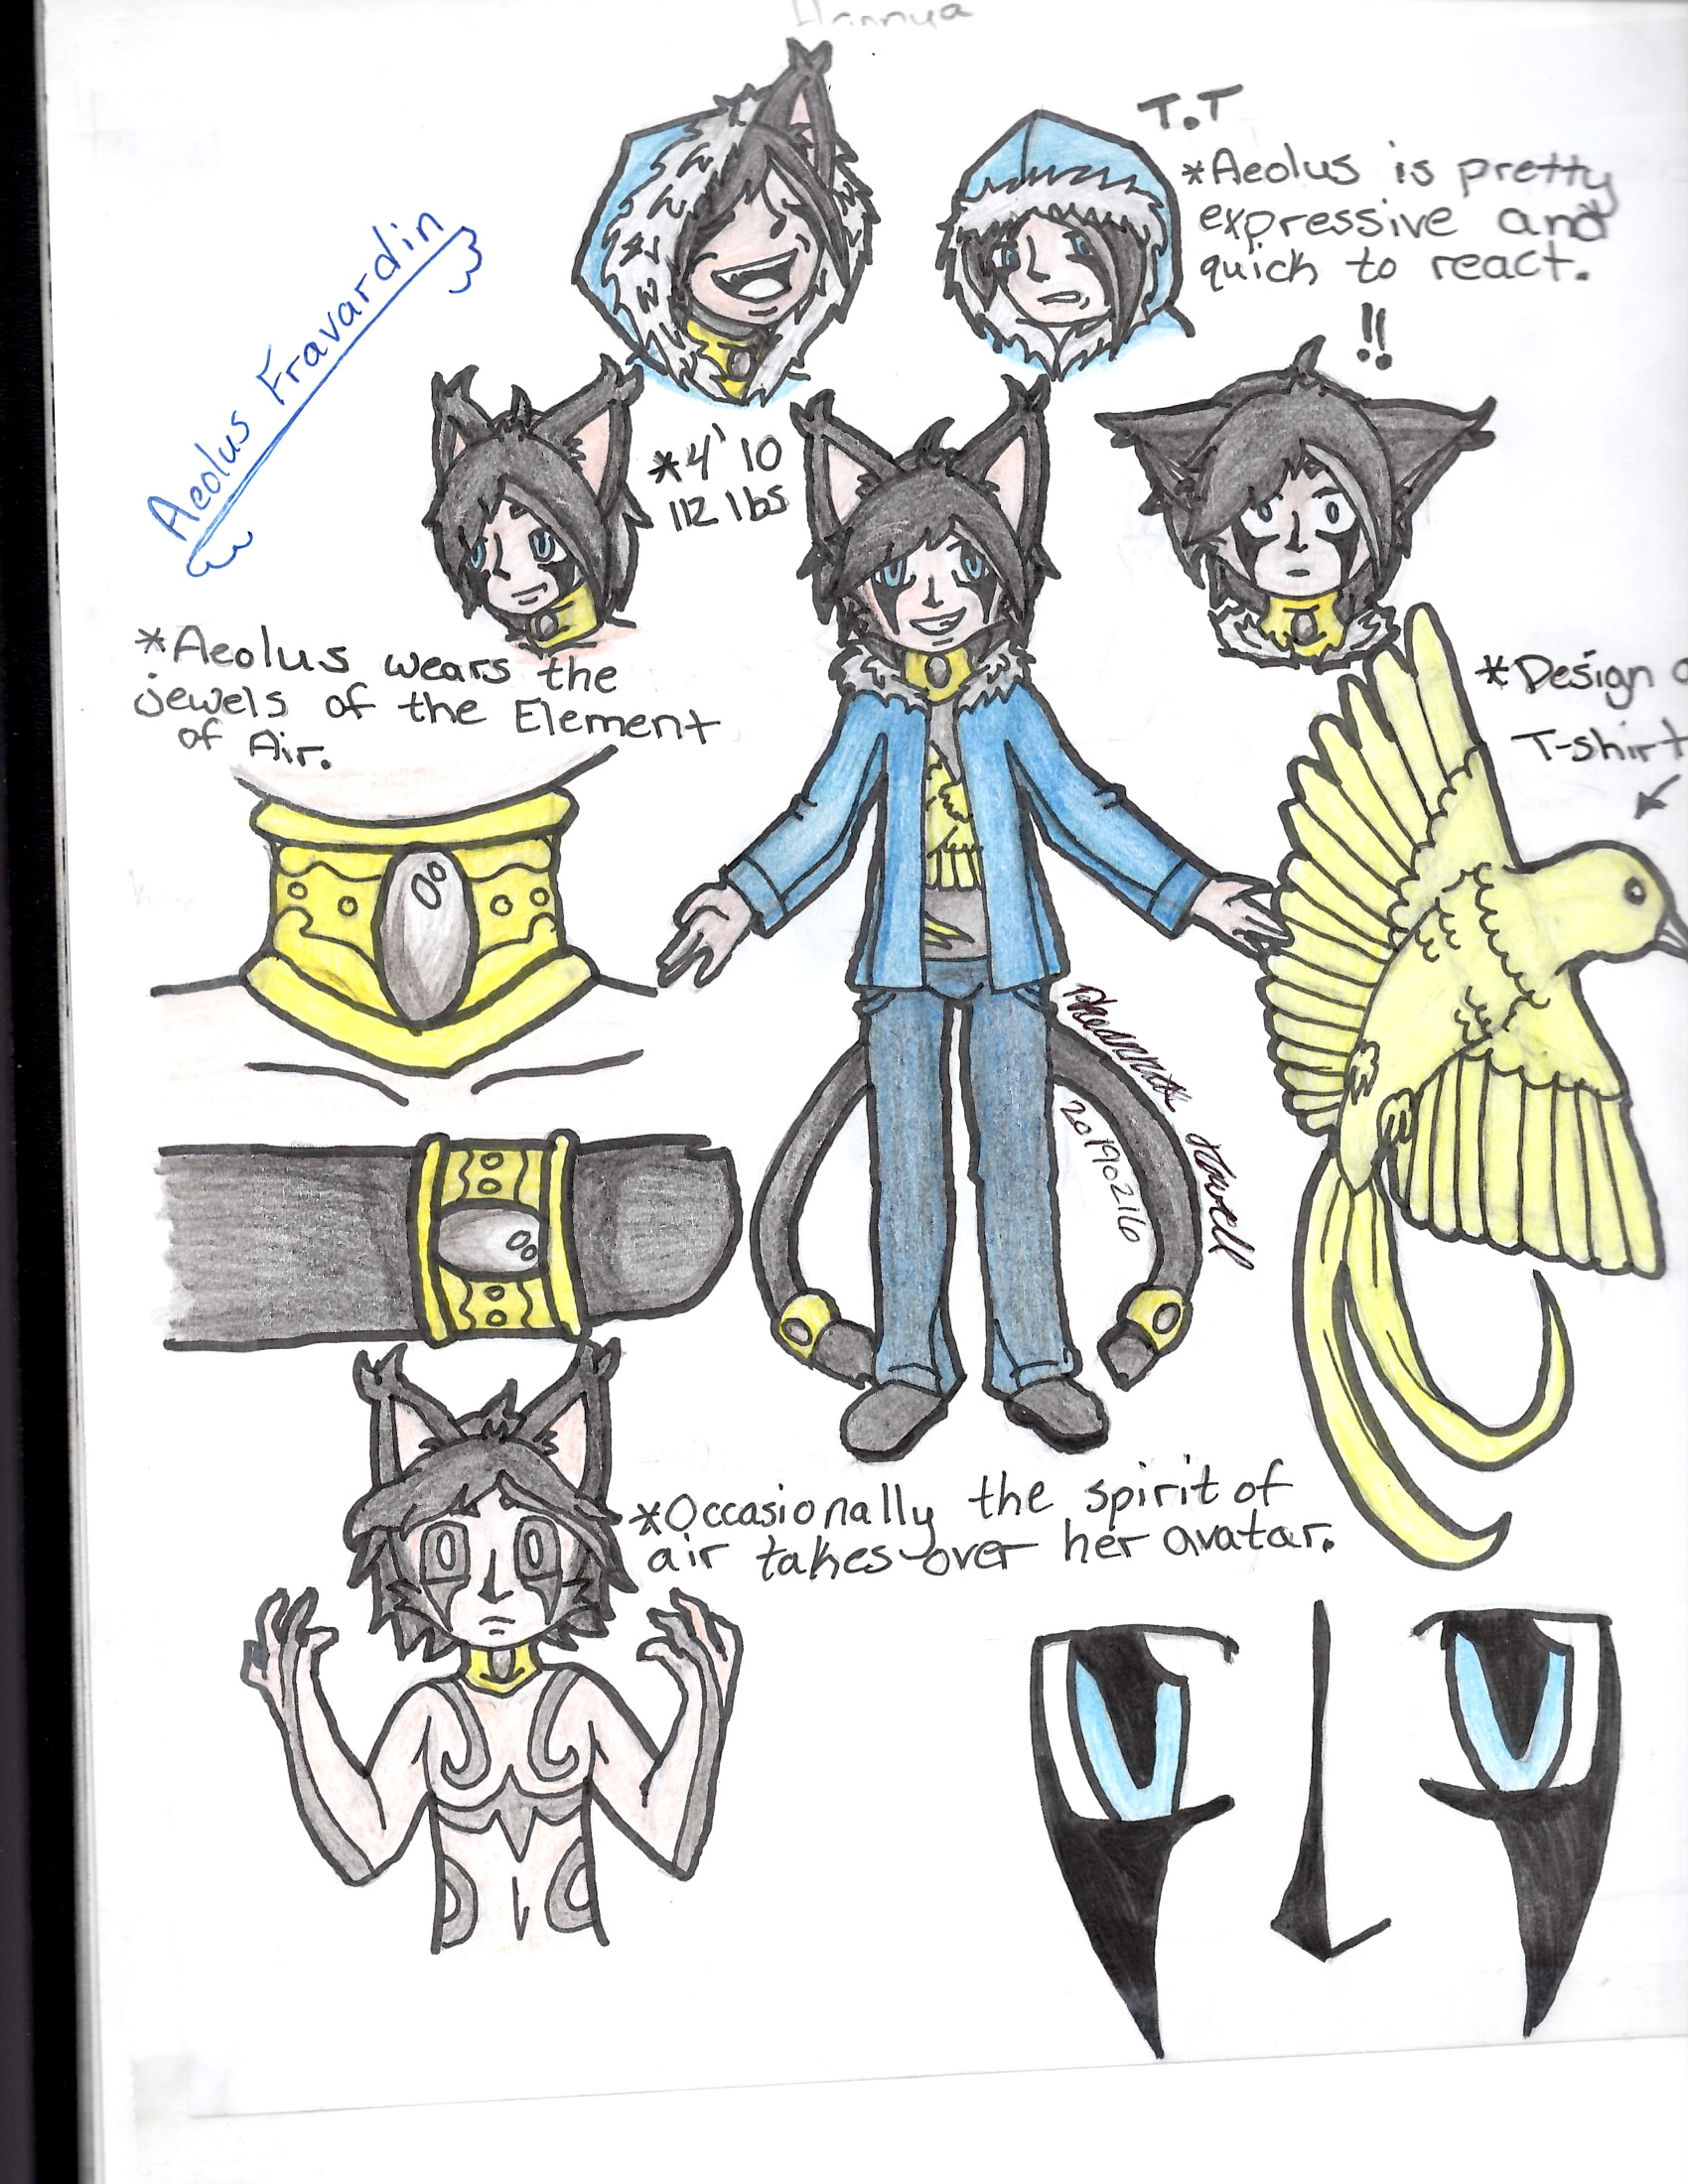 Aeolus Fravardin
T.T
*Aeolus is pretty
expressive and
quick to react.
!!
*4'10
112 lbs
*Aeolus wears the
jewels of the Element
of Air.
*Design
T-shirt
20190216
*Occasionally the spirit of
air takes over her avatar.